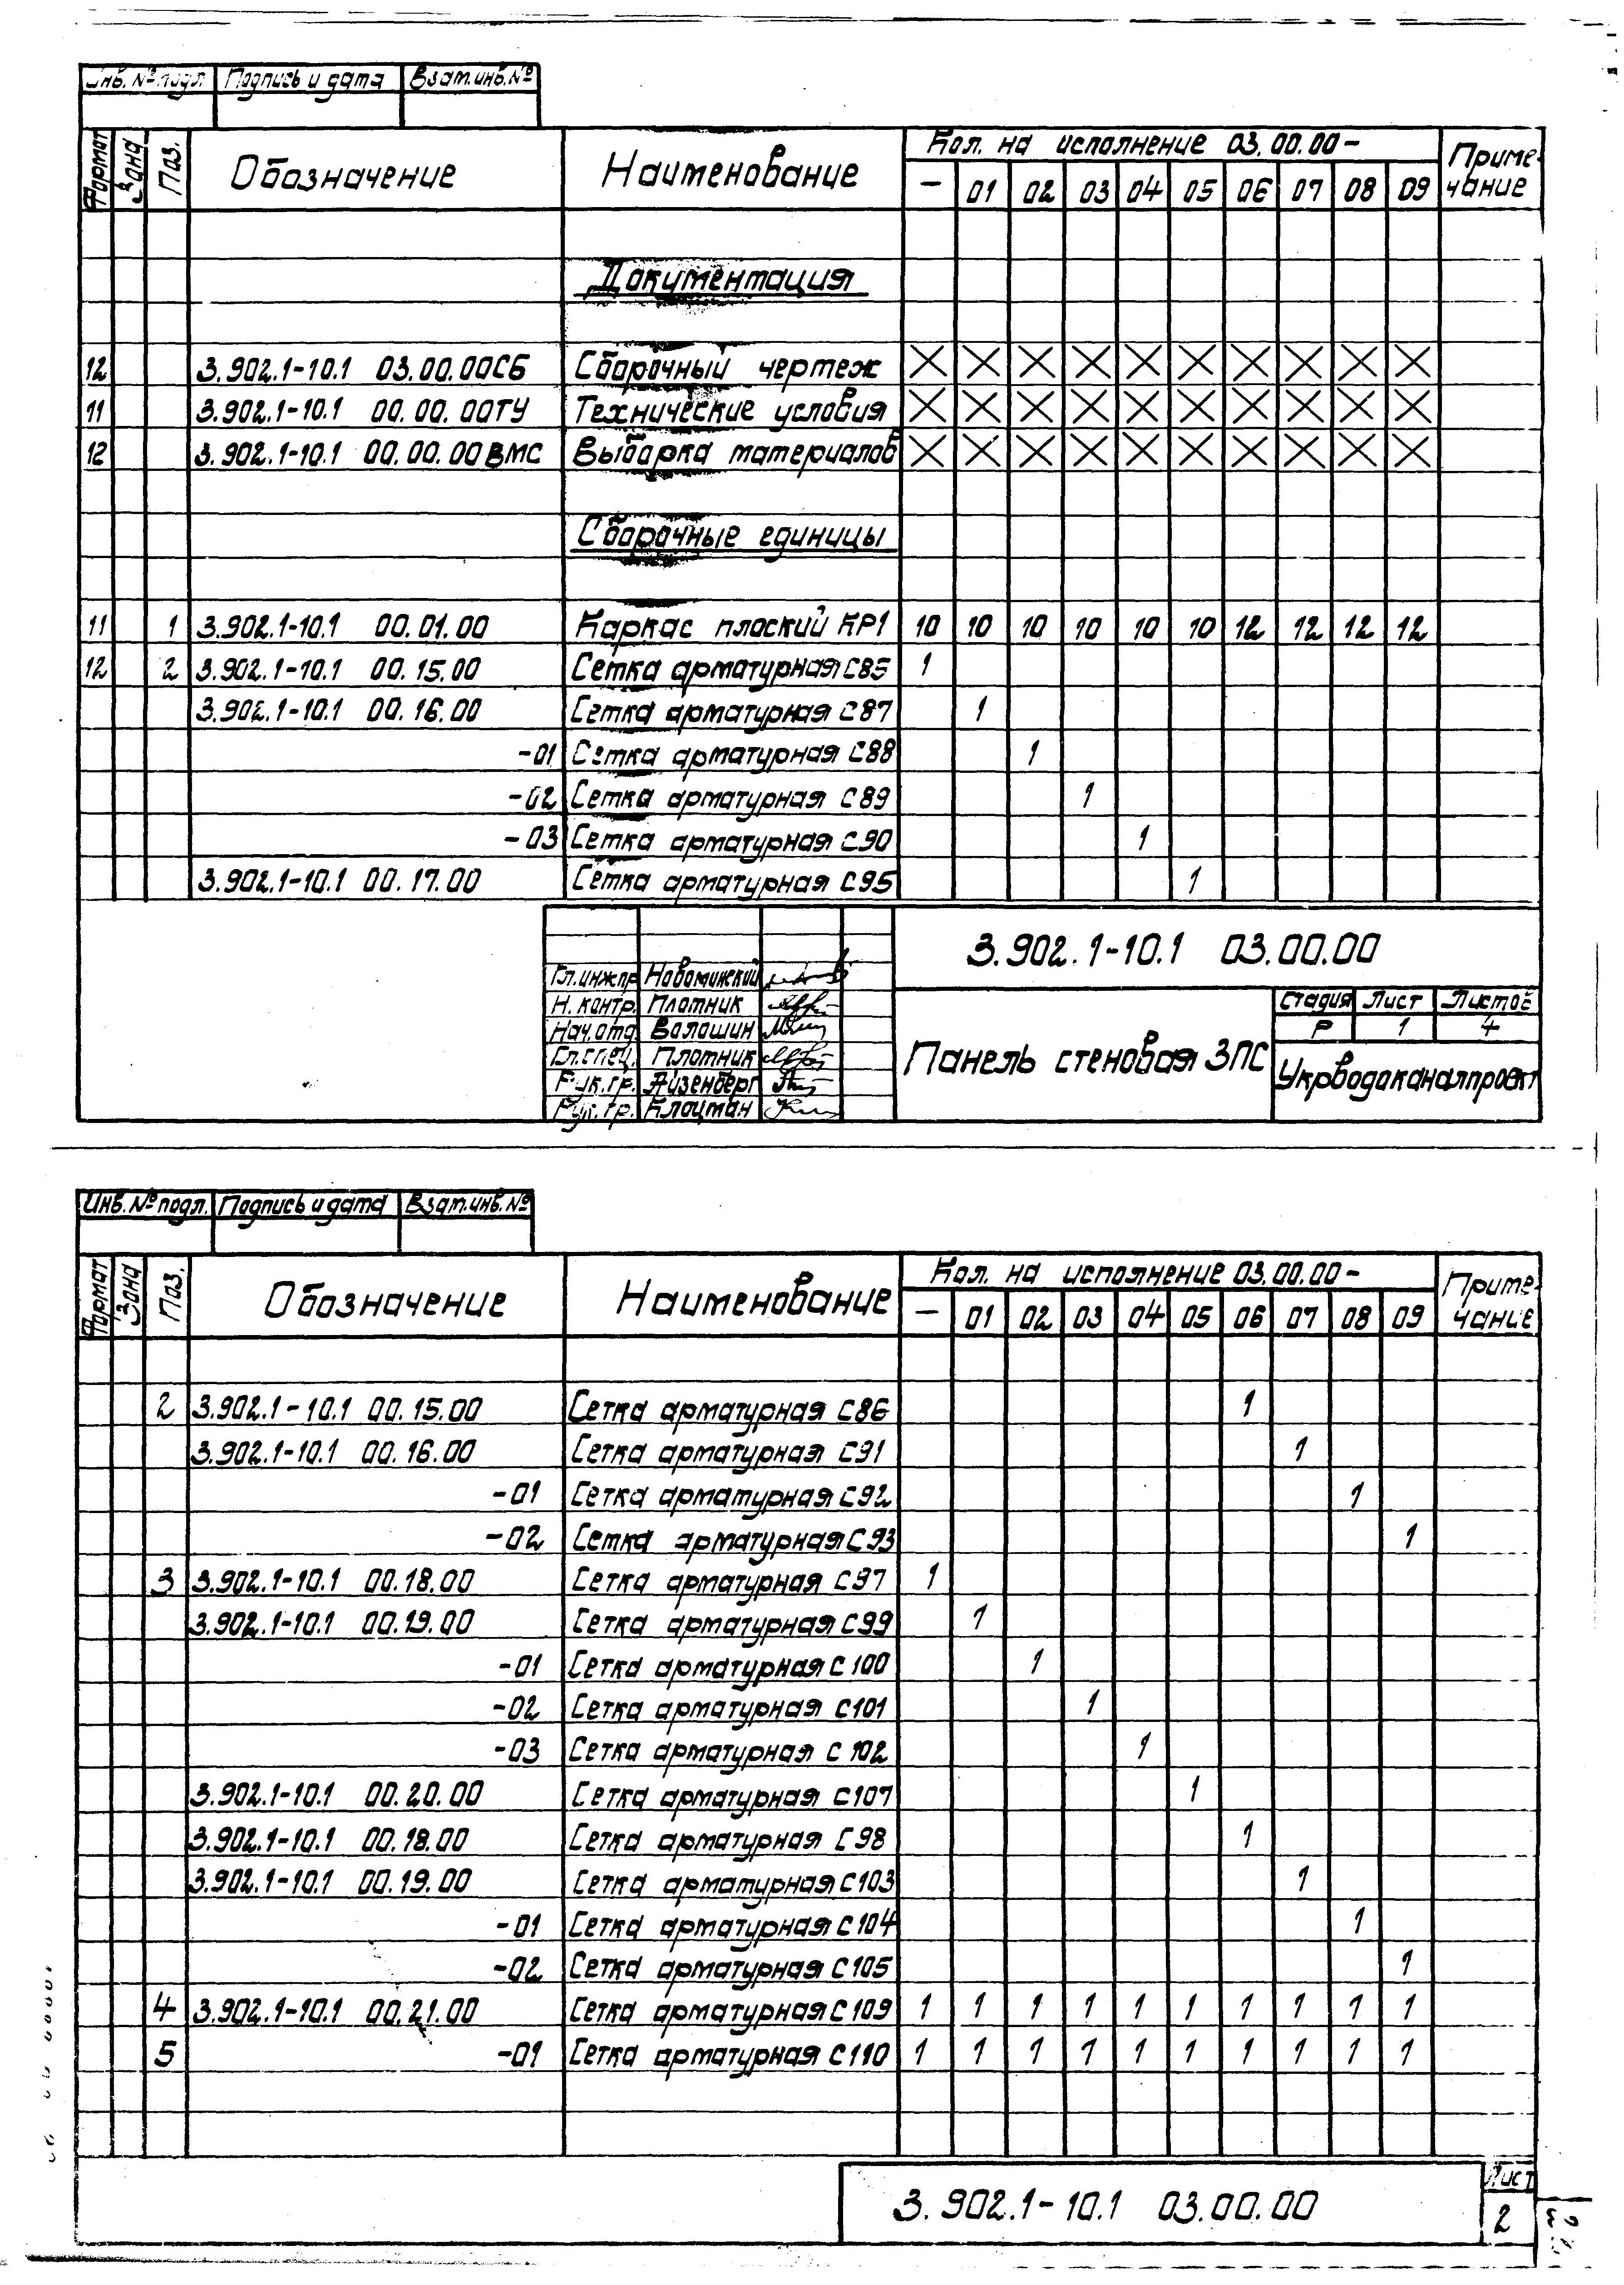 Инв. № подл. Подпись и дата Взам. инв. №
Формат Зона Поз. Обозначение Наименование Кол. на исполнение 03.00.00 – Примечание
– 01 02 03 04 05 06 07 08 09
Документация
12 3.902.1-10.1 03.00.00СБ Сборочный чертеж
11 3.902.1-10.1 00.00.00ТУ Технические условия
12 3.902.1-10.1 00.00.00ВМС Выборка материалов
Сборочные единицы
11 1 3.902.1-10.1 00.01.00 Каркас плоский КР1 10 10 10 10 10 10 12 12 12 12
12 2 3.902.1-10.1 00.15.00 Сетка арматурная С85 1
3.902.1-10.1 00.16.00 Сетка арматурная С87 1
-01 Сетка арматурная С88 1
-02 Сетка арматурная С89 1
-03 Сетка арматурная С90 1
3.902.1-10.1 00.17.00 Сетка арматурная С95 1
3.902.1-10.1 03.00.00
Гл.инж.пр. Новоминский
Н. контр. Плотник
Нач.отд. Волошин
Гл.спец. Плотник
Рук.гр. Айзенберг
Рук.гр. Клоцман
Панель стеновая 3ПС
Стадия Лист Листов
Р 1 4
Укрводоканалпроект
Инв. № подл. Подпись и дата Взам. инв. №
Формат Зона Поз. Обозначение Наименование Кол. на исполнение 03.00.00 – Примечание
– 01 02 03 04 05 06 07 08 09
2 3.902.1-10.1 00.15.00 Сетка арматурная С86 1
3.902.1-10.1 00.16.00 Сетка арматурная С91 1
-01 Сетка арматурная С92 1
-02 Сетка арматурная С93 1
3 3.902.1-10.1 00.18.00 Сетка арматурная С97 1
3.902.1-10.1 00.19.00 Сетка арматурная С99 1
-01 Сетка арматурная С100 1
-02 Сетка арматурная С101 1
-03 Сетка арматурная С102 1
3.902.1-10.1 00.20.00 Сетка арматурная С107 1
3.902.1-10.1 00.18.00 Сетка арматурная С98 1
3.902.1-10.1 00.19.00 Сетка арматурная С103 1
-01 Сетка арматурная С104 1
-02 Сетка арматурная С105 1
4 3.902.1-10.1 00.21.00 Сетка арматурная С109 1 1 1 1 1 1 1 1 1 1
5 -01 Сетка арматурная С110 1 1 1 1 1 1 1 1 1 1
3.902.1-10.1 03.00.00
Лист
2